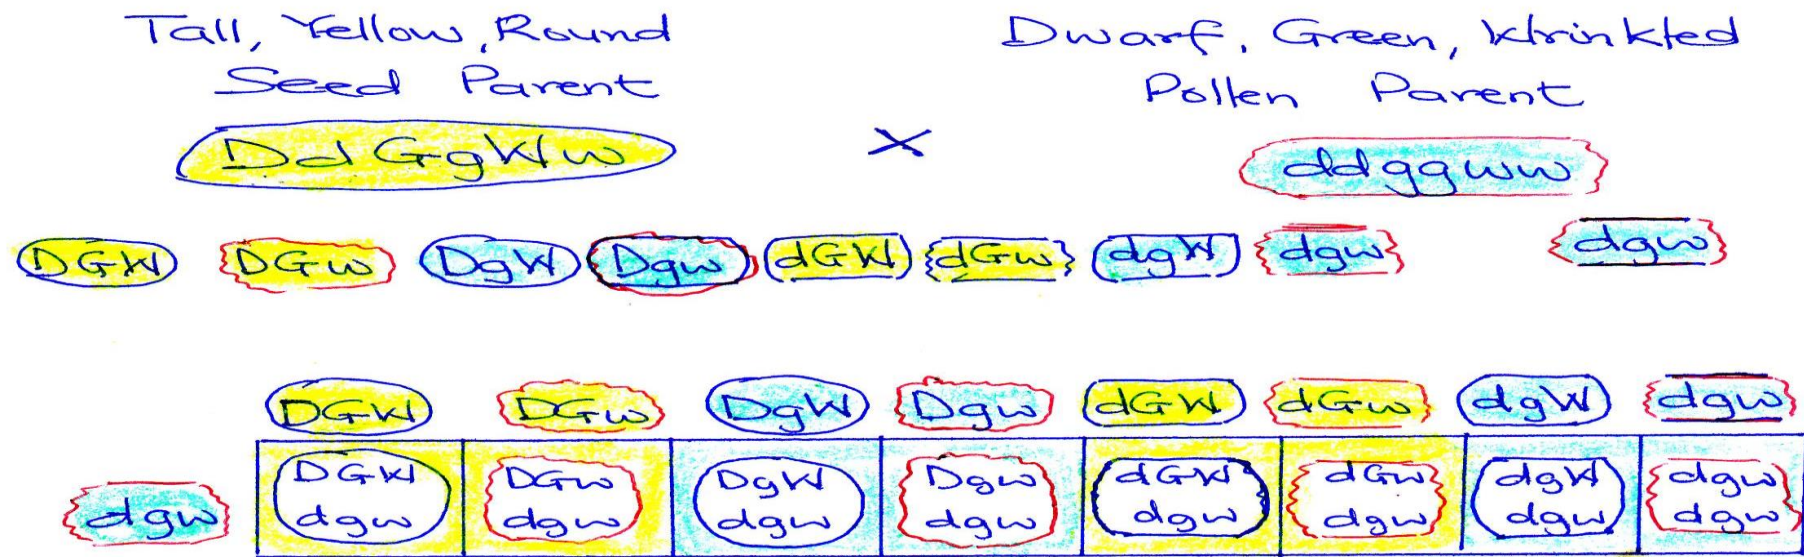 Tall, Yellow, Round
Seed Parent
Dwarf, Green, Wrinkled
Pollen Parent
DdGgWw × ddggww
DGW DGw DgW Dgw dGW dGw dgW dgw dgw
DGW DGw DgW Dgw dGW dGw dgW dgw
DGW DGw DgW Dgw dGW dGw dgW dgw
dgw dgw dgw dgw dgw dgw dgw dgw dgw